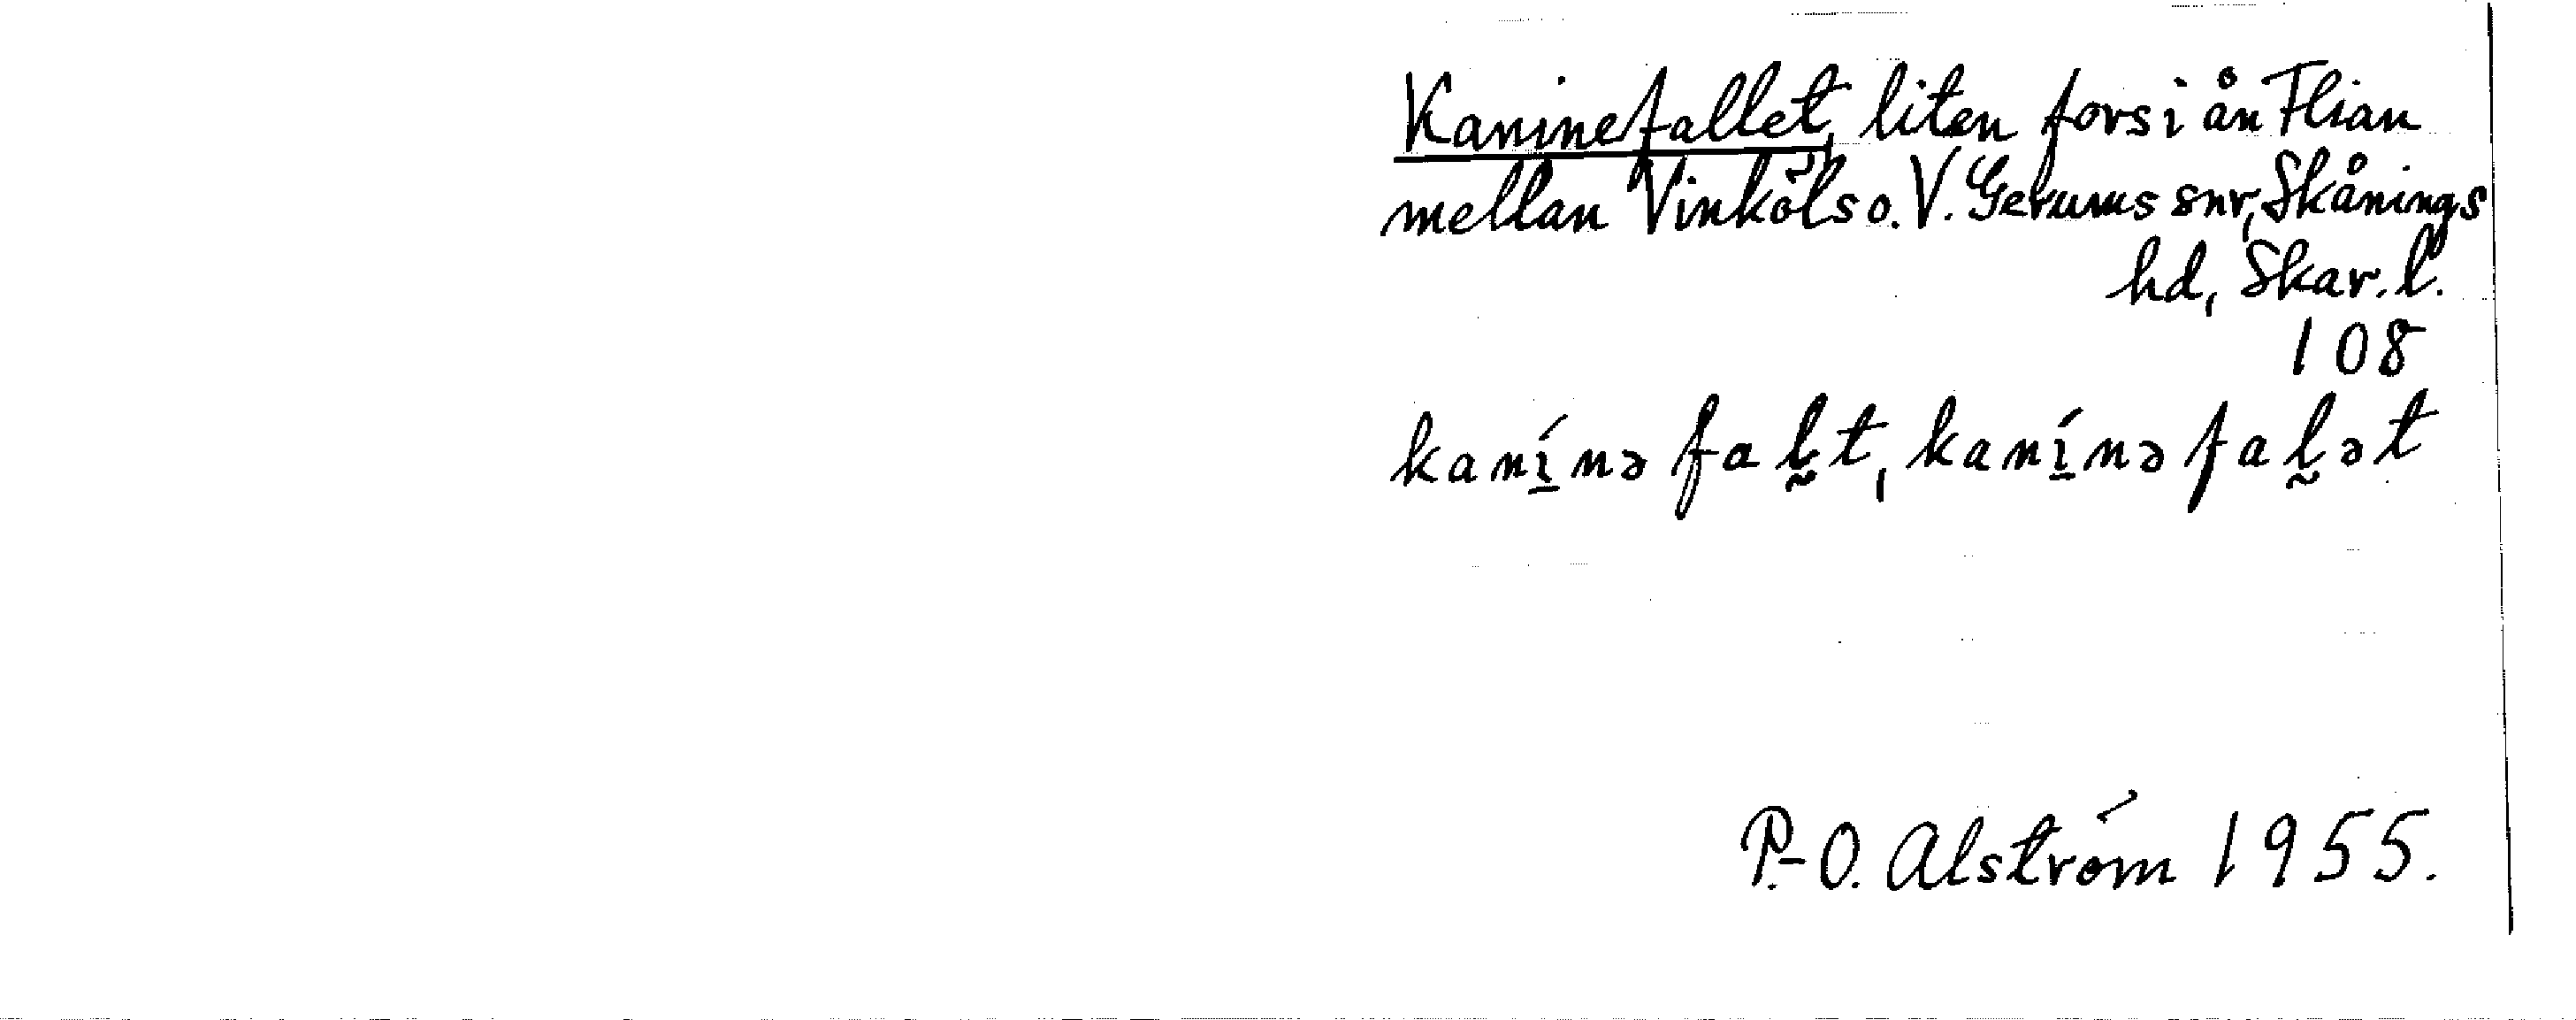 Kaninefallet, liten fors i ån Flian
mellan Vinköls o. V. Gerums snr, Skånings
hd, Skar. l.
108
kaní̱nə fal̰t, kaní̱nə fal̰ət
P.-O. Alström 1955.